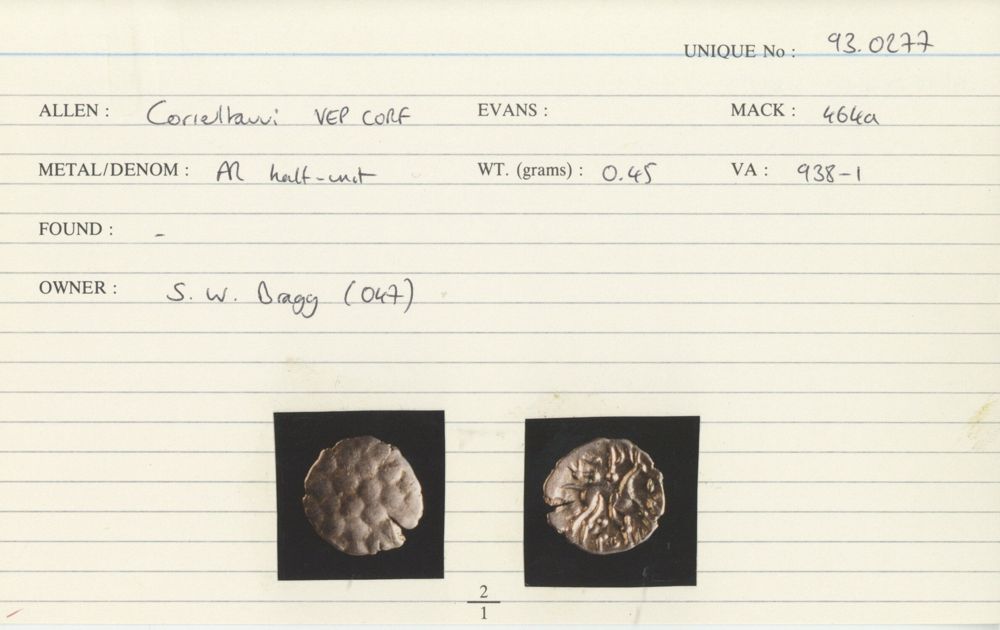 UNIQUE No : 93.0277
ALLEN : Corieltauvi VEP CORF EVANS : MACK : 464a
METAL/DENOM : AR half-unit WT. (grams) : 0.45 VA : 938-1
FOUND : -
OWNER : S. W. Bragg (047)
2
1